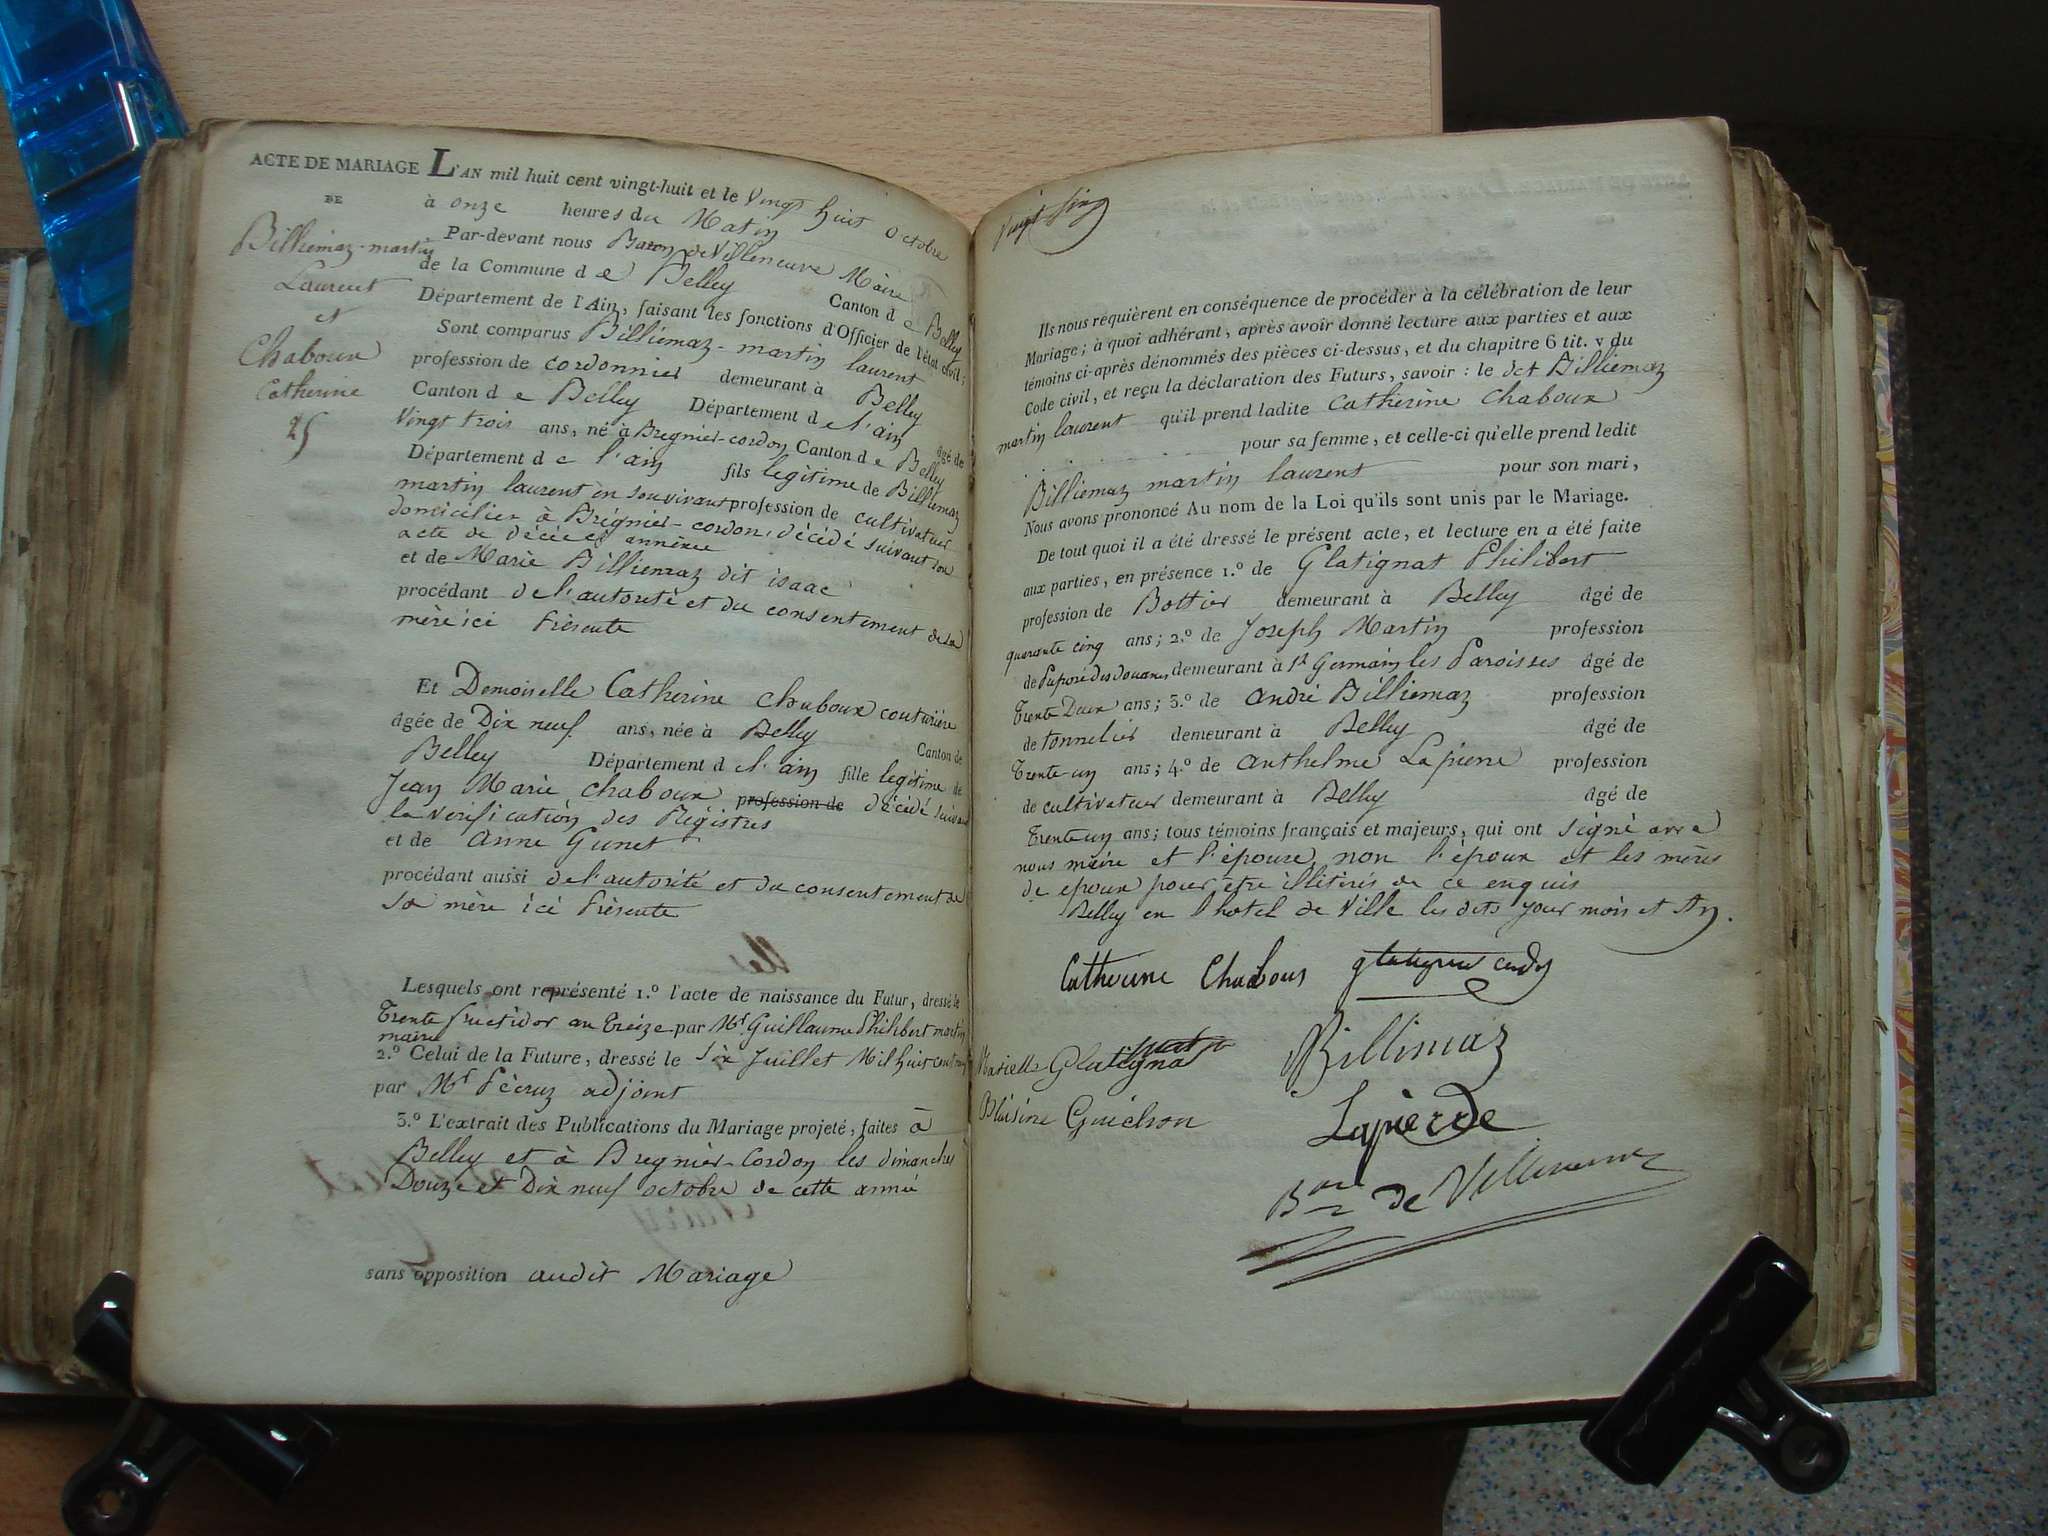 ACTE DE MARIAGE
DE
Billiemaz-martin
Laurent
et
Chaboux
Catherine
25
L'AN mil huit cent vingt-huit et le Vingt huit Octobre
à onze heures du Matin
Par-devant nous Baron de Villeneuve Maire
de la Commune de Belley Canton de Belley
Département de l'Ain, faisant les fonctions d'Officier de l'état civil;
Sont comparus Billiemaz-martin laurent
profession de cordonnier demeurant à Belley
Canton de Belley Département de l'ain âgé de
Vingt trois ans, né à Bregnier-cordon Canton de Belley
Département de l'ain fils legitime de Billiemaz
martin laurent en son vivant profession de cultivateur
domicilier à Brégnier-cordon, décédé suivant son
acte de décée annéxée
et de Marie Billiemaz dit isaac
procédant de l'autorité et du consentement de sa
mère ici Présente
Et Demoiselle Catherine Chaboux couturière
âgée de Dix neuf ans, née à Belley Canton de
Belley Département de l'ain fille legitime de
Jean Marie Chaboux profession de décédé suivant
la vérification des Régistres
et de Anne Gunet
procédant aussi de l'autorité et du consentement de
sa mère ici Présente
Lesquels ont représenté 1.º l'acte de naissance du Futur, dressé le
Trente fructidor an Treize par Mr Guillaume Philibert martin
maire
2.º Celui de la Future, dressé le Six Juillet Mil huit cent neuf
par Mr Pécruz adjoint
3.º L'extrait des Publications du Mariage projeté, faites à
Belley et à Bregnier-Cordon les dimanches
Douze et Dix neuf octobre de cette année
sans opposition audit Mariage
Vingt Cinq
Ils nous requièrent en conséquence de procéder à la célébration de leur
Mariage; à quoi adhérant, après avoir donné lecture aux parties et aux
témoins ci-après dénommés des pièces ci-dessus, et du chapitre 6 tit. v du
Code civil, et reçu la déclaration des Futurs, savoir: le det Billiemaz
martin laurent qu'il prend ladite Catherine Chaboux
pour sa femme, et celle-ci qu'elle prend ledit
Billiemaz martin laurent pour son mari,
Nous avons prononcé Au nom de la Loi qu'ils sont unis par le Mariage.
De tout quoi il a été dressé le présent acte, et lecture en a été faite
aux parties, en présence 1.º de Glatignat Philibert
profession de Bottier demeurant à Belley âgé de
quarante cinq ans; 2.º de Joseph Martin profession
de Préposé des Douanes demeurant à St Germain les Paroisses âgé de
Trente Deux ans; 3.º de andré Billiemaz profession
de tonnelier demeurant à Belley âgé de
Trente-un ans; 4.º de anthelme Lapierre profession
de cultivateur demeurant à Belley âgé de
Trente un ans; tous témoins français et majeurs, qui ont signé avec
nous maire et l'épouse non l'époux et les mères
de époux pour être illitérés de ce enquis
Belley en l'hotel de Ville les dits jour mois et An.
Catherine Chabous
Mariette Glatigna
Billimaz
Blaisine Guichon
Lapierre
Bon de Villeneuve